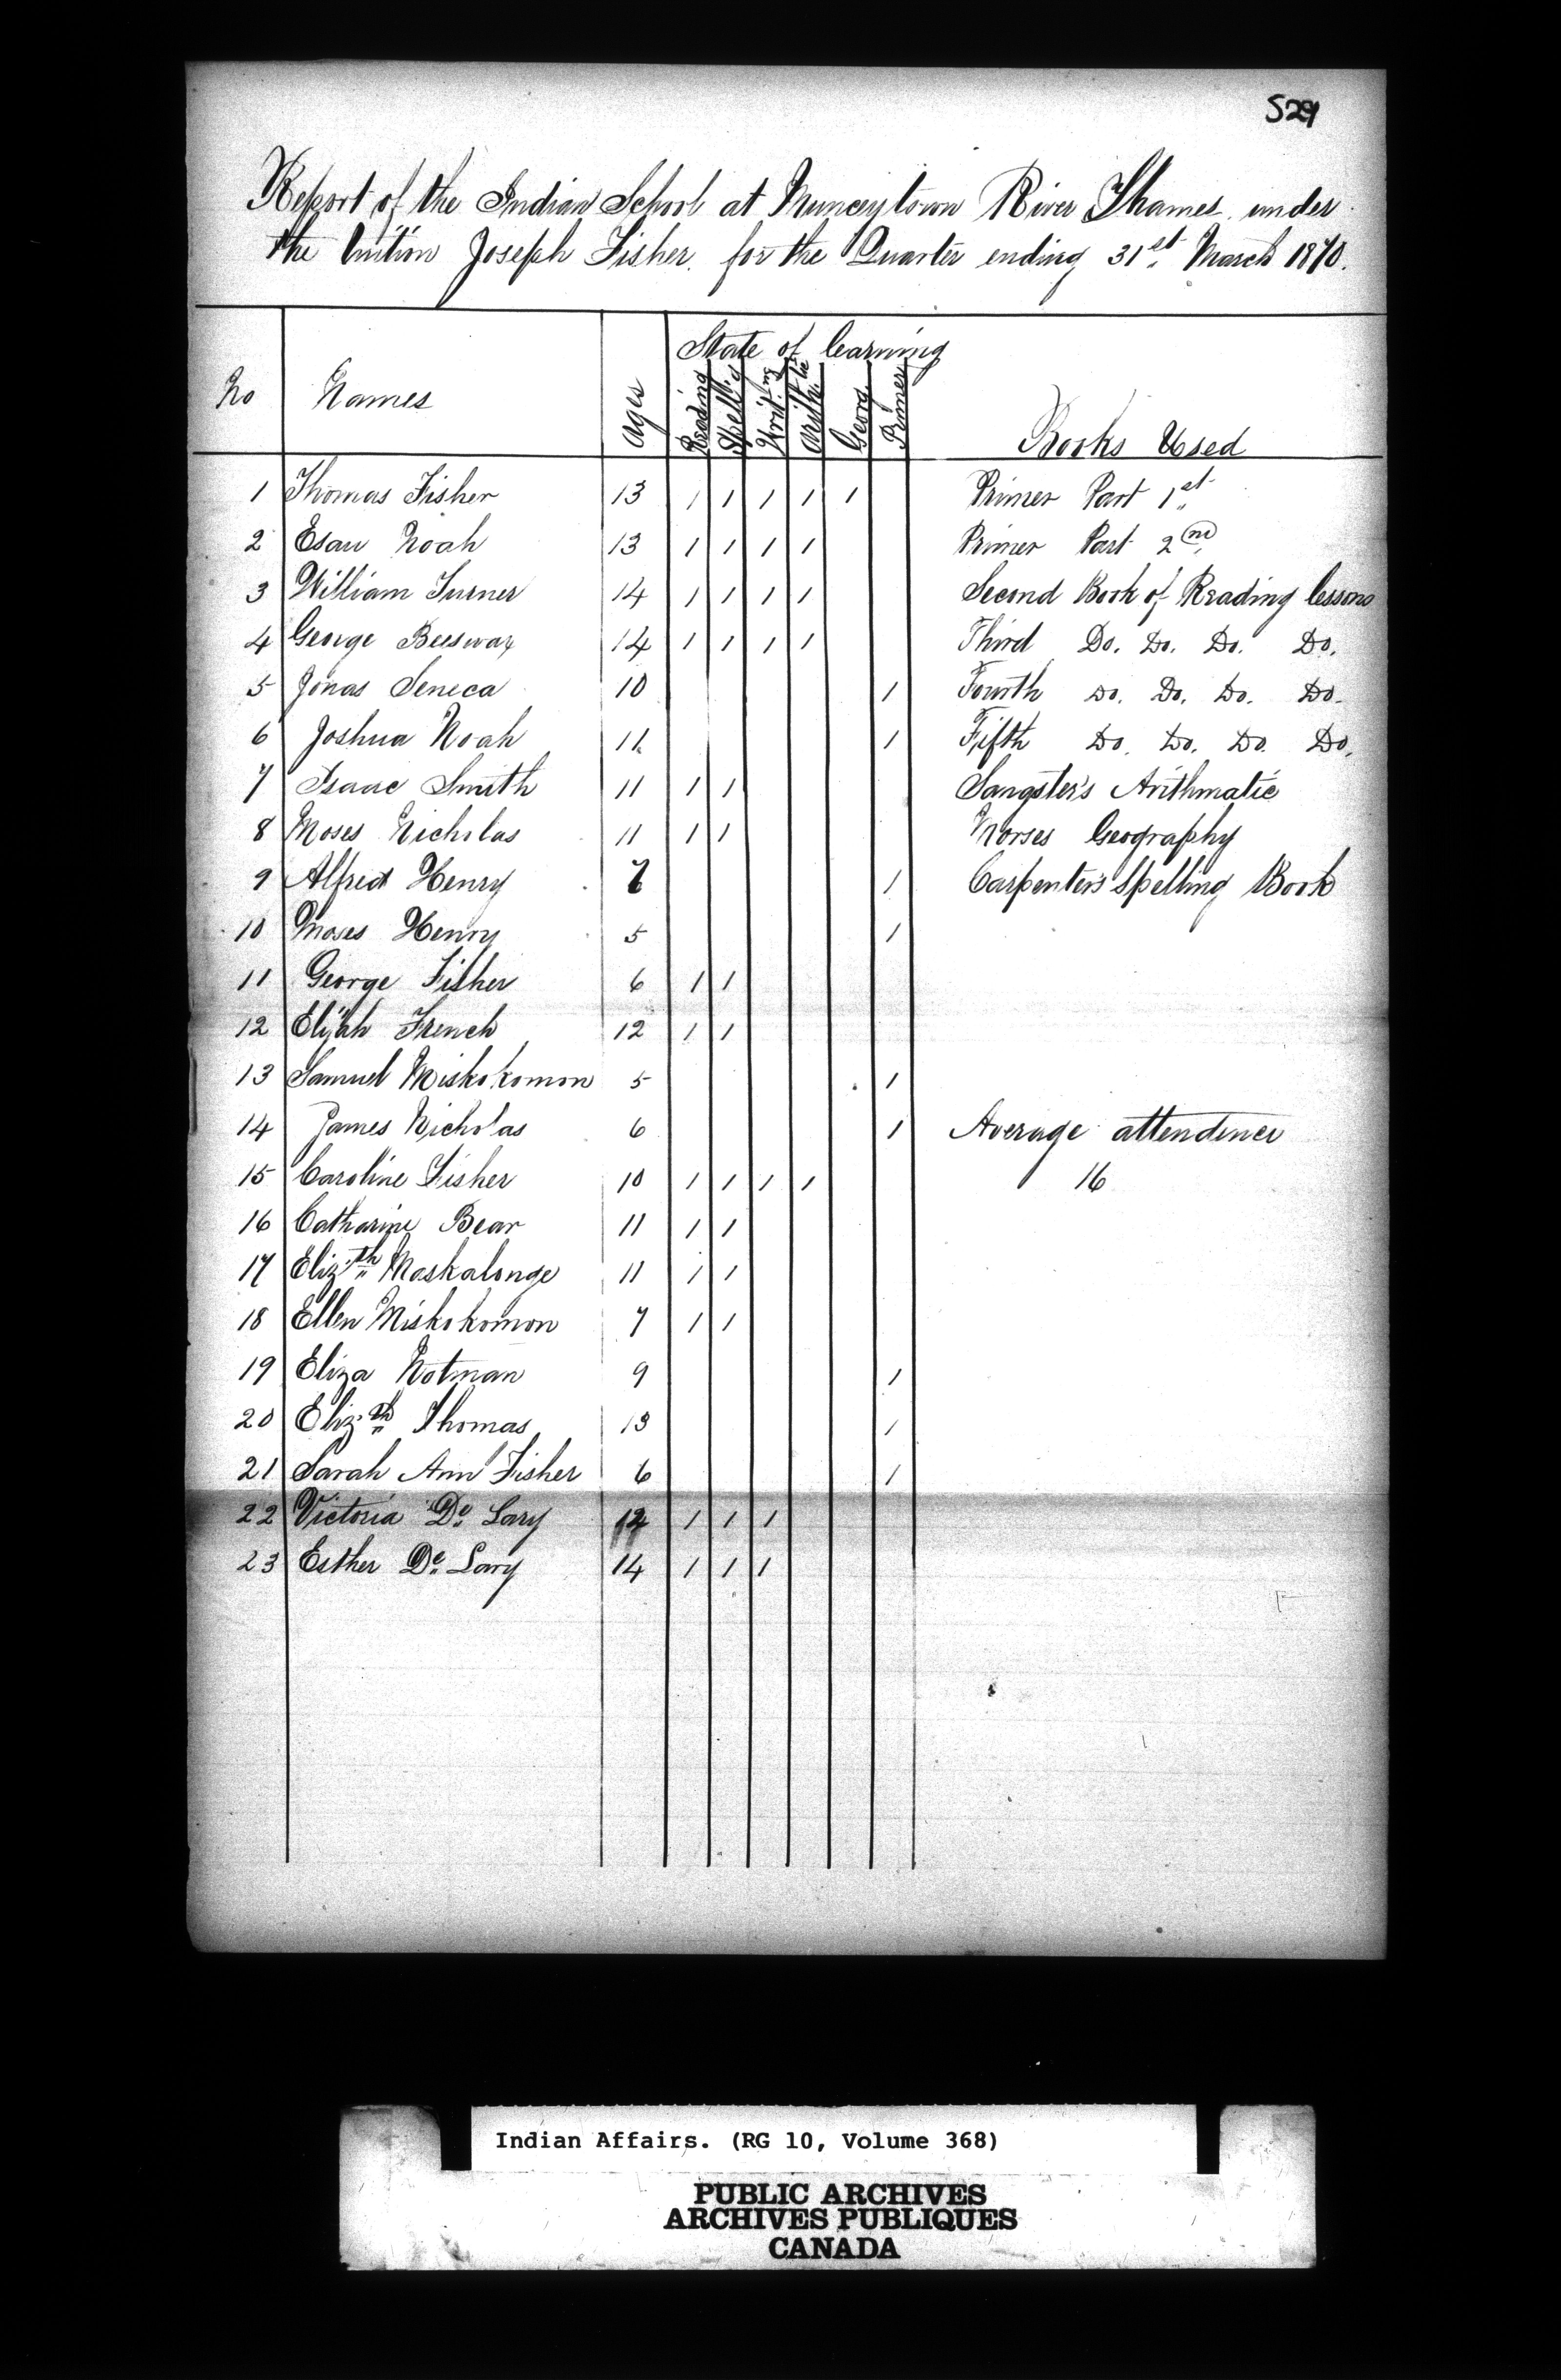 5291
Report of the Indian School at Munceytown River Thames under
the tuition Joseph Fisher for the Quarter ending 31st March 1870.
State of learning
No Names Ages Reading Spell'g Writ'ng Arith'tic Georg. Primer Books Used
1 Thomas Fisher 13 1 1 1 1 1 Primer Part 1st
2 Esau Noah 13 1 1 1 1 Primer Part 2nd
3 William Turner 14 1 1 1 1 Second Book of Reading lessons
4 George Beeswax 14 1 1 1 1 Third Do. Do. Do. Do.
5 Jonas Seneca 10 1 Fourth Do. Do. Do. Do.
6 Joshua Noah 11 1 Fifth Do. Do. Do. Do.
7 Isaac Smith 11 1 1 Sangster's Arithmatic
8 Moses Nicholas 11 1 1 Morses Geography
9 Alfred Henry 1 Carpenter's Spelling Book
10 Moses Henry 5 1
11 George Fisher 6 1 1
12 Elijah French 12 1 1
13 Samuel Miskokomon 5 1
14 James Nicholas 6 1 Average attendence
15 Caroline Fisher 10 1 1 1 1 16
16 Catharine Bear 11 1 1
17 Eliz'th Maskalonge 11 1 1
18 Ellen Miskokomon 7 1 1
19 Eliza Notman 9 1
20 Eliz'th Thomas 13 1
21 Sarah Ann Fisher 6 1
22 Victoria De Lary 12 1 1 1
23 Esther De Lary 14 1 1 1
Indian Affairs. (RG 10, Volume 368)
PUBLIC ARCHIVES
ARCHIVES PUBLIQUES
CANADA